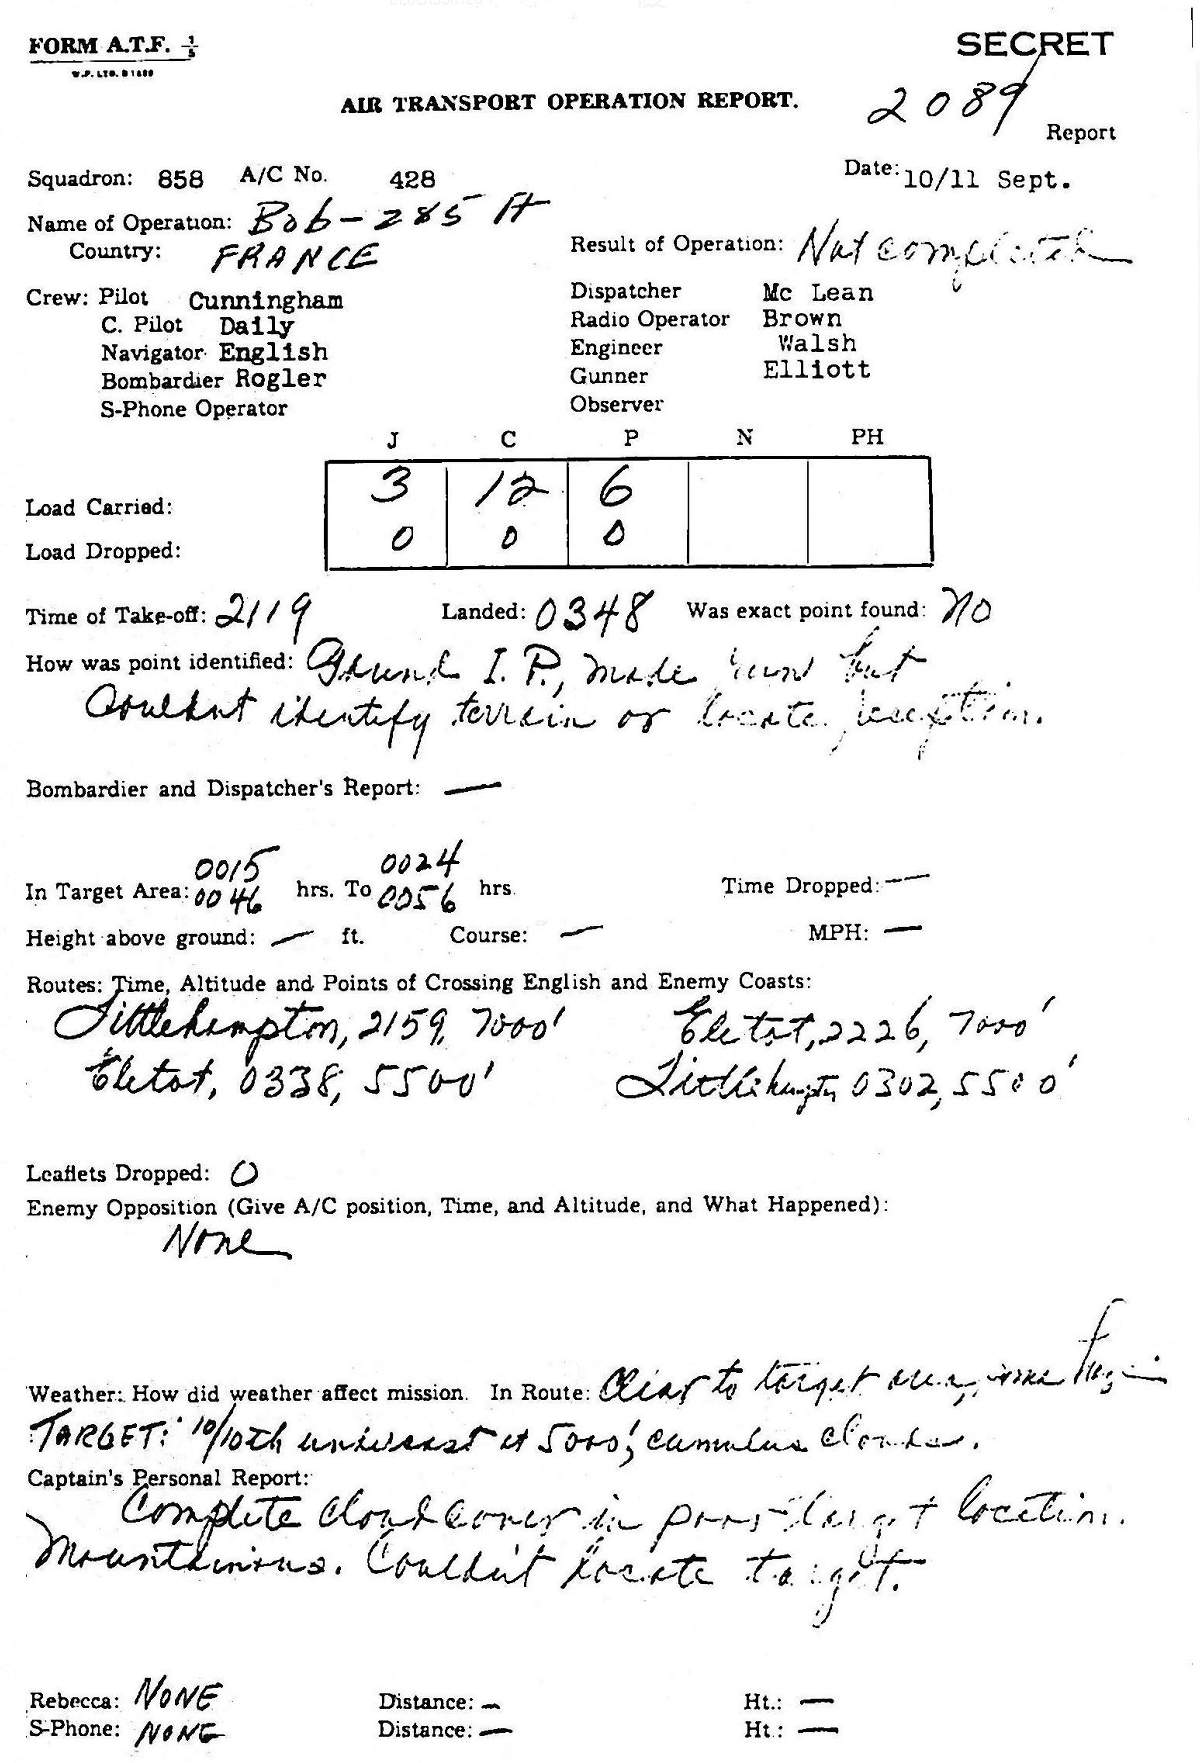 FORM A.T.F. 1/5
SECRET
W.P. LTD. D1689
AIR TRANSPORT OPERATION REPORT.
2089
Report
Squadron: 858 A/C No. 428 Date: 10/11 Sept.
Name of Operation: Bob-285 A
Country: FRANCE Result of Operation: Not completed
Crew: Pilot Cunningham Dispatcher Mc Lean
C. Pilot Daily Radio Operator Brown
Navigator English Engineer Walsh
Bombardier Rogler Gunner Elliott
S-Phone Operator Observer
J C P N PH
Load Carried: 3 12 6
Load Dropped: 0 0 0
Time of Take-off: 2119 Landed: 0348 Was exact point found: No
How was point identified: Found I.P., made run but
Couldnt identify terrain or locate reception.
Bombardier and Dispatcher's Report: —
0015 0024
In Target Area: 0046 hrs. To 0056 hrs. Time Dropped: —
Height above ground: — ft. Course: — MPH: —
Routes: Time, Altitude and Points of Crossing English and Enemy Coasts:
Littlehampton, 2159, 7000' Eletot, 2226, 7000'
Eletot, 0338, 5500' Littlehampton 0302, 5500'
Leaflets Dropped: 0
Enemy Opposition (Give A/C position, Time, and Altitude, and What Happened):
None
Weather: How did weather affect mission. In Route: Clear to target area, some
TARGET: 10/10th undercast at 5000', cumulus clouds.
Captain's Personal Report:
Complete cloud cover in poor target location.
Mountainous. Couldn't locate target.
Rebecca: NONE Distance: — Ht.: —
S-Phone: NONE Distance: — Ht.: —